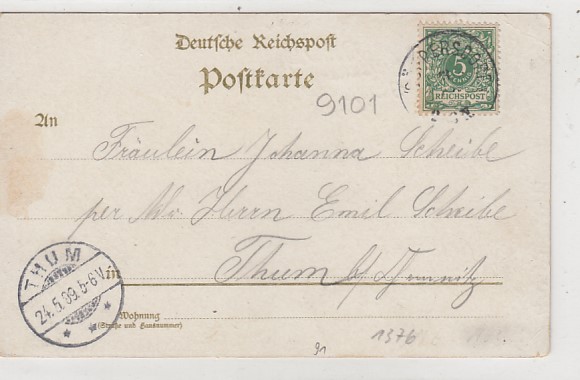 Deutsche Reichspost
Postkarte
5
PFENNIG
REICHSPOST
9101
An
Fräulein Johanna Scheibe
per Adr. Herrn Emil Scheibe
in Thum b/ Chemnitz
THUM
24.5.09.5-6V.
Wohnung
(Straße und Hausnummer)
91
1376